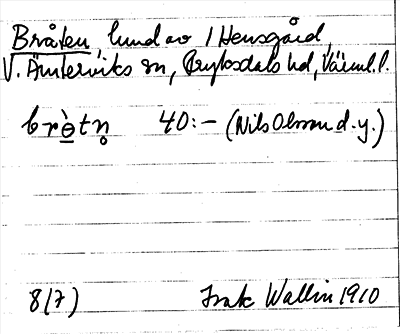 Bråten, lund av 1 Hensgård,
V. Ämterviks sn, Fryksdals hd, Värml. l.
brὸ̲tn̥ 40:— (Nils Olsson d. y.)
8(7) Isak Wallin 1910